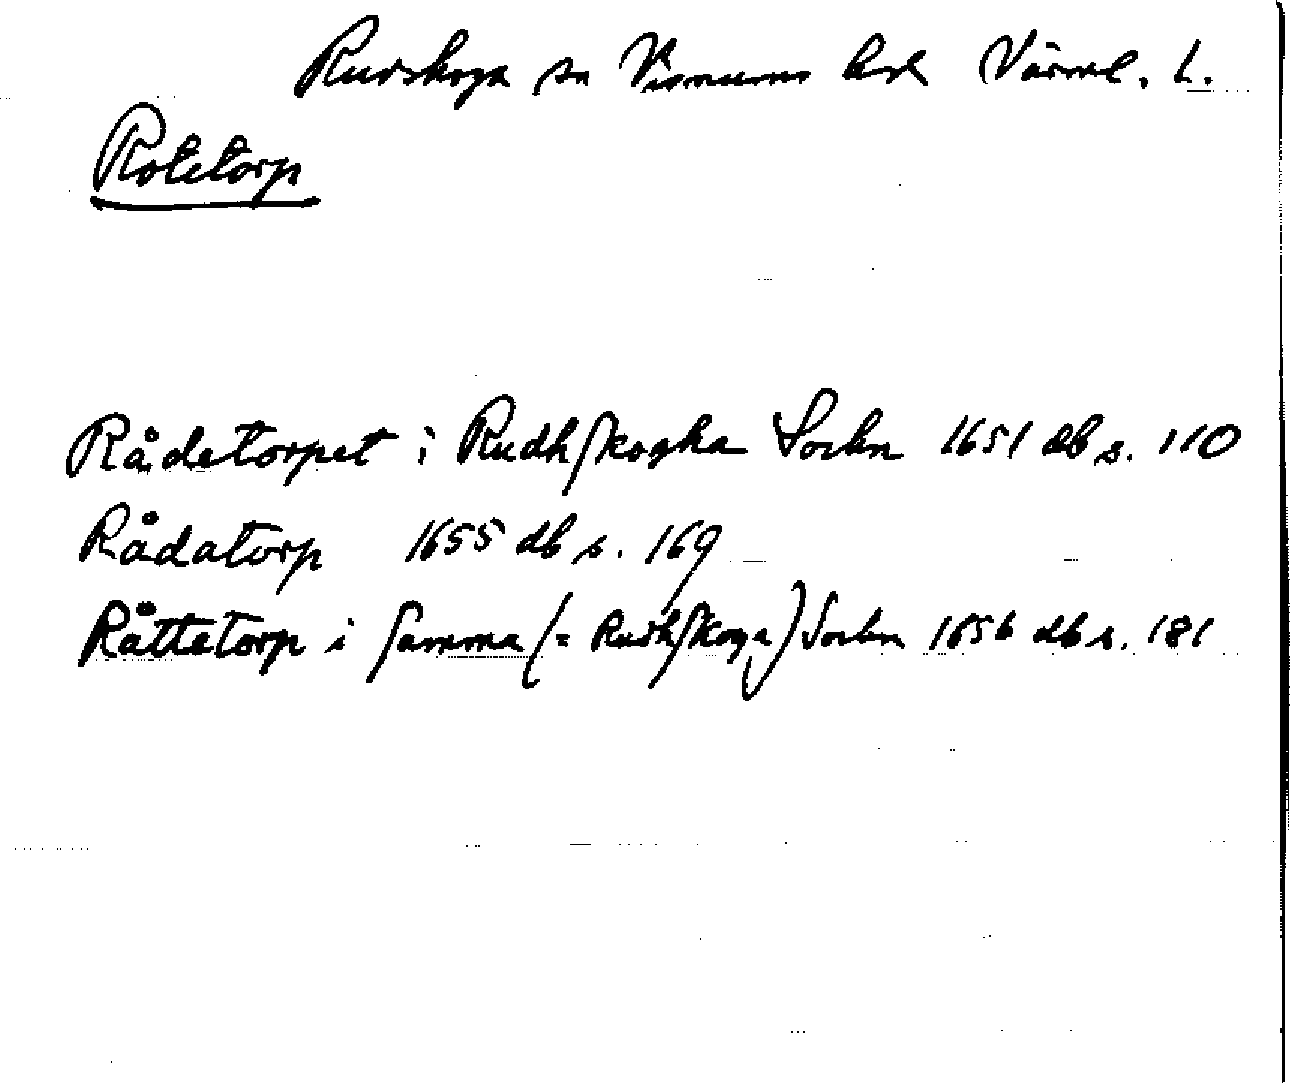 Rudskoga sn Visnums hd Värml. L.
Rotetorp
Rådetorpet i Rudhskogha Sochn 1651 db s. 110
Rådatorp 1655 db s. 169
Råttetorp i samma (= Rudhskoga) Sochn 1656 db s. 181